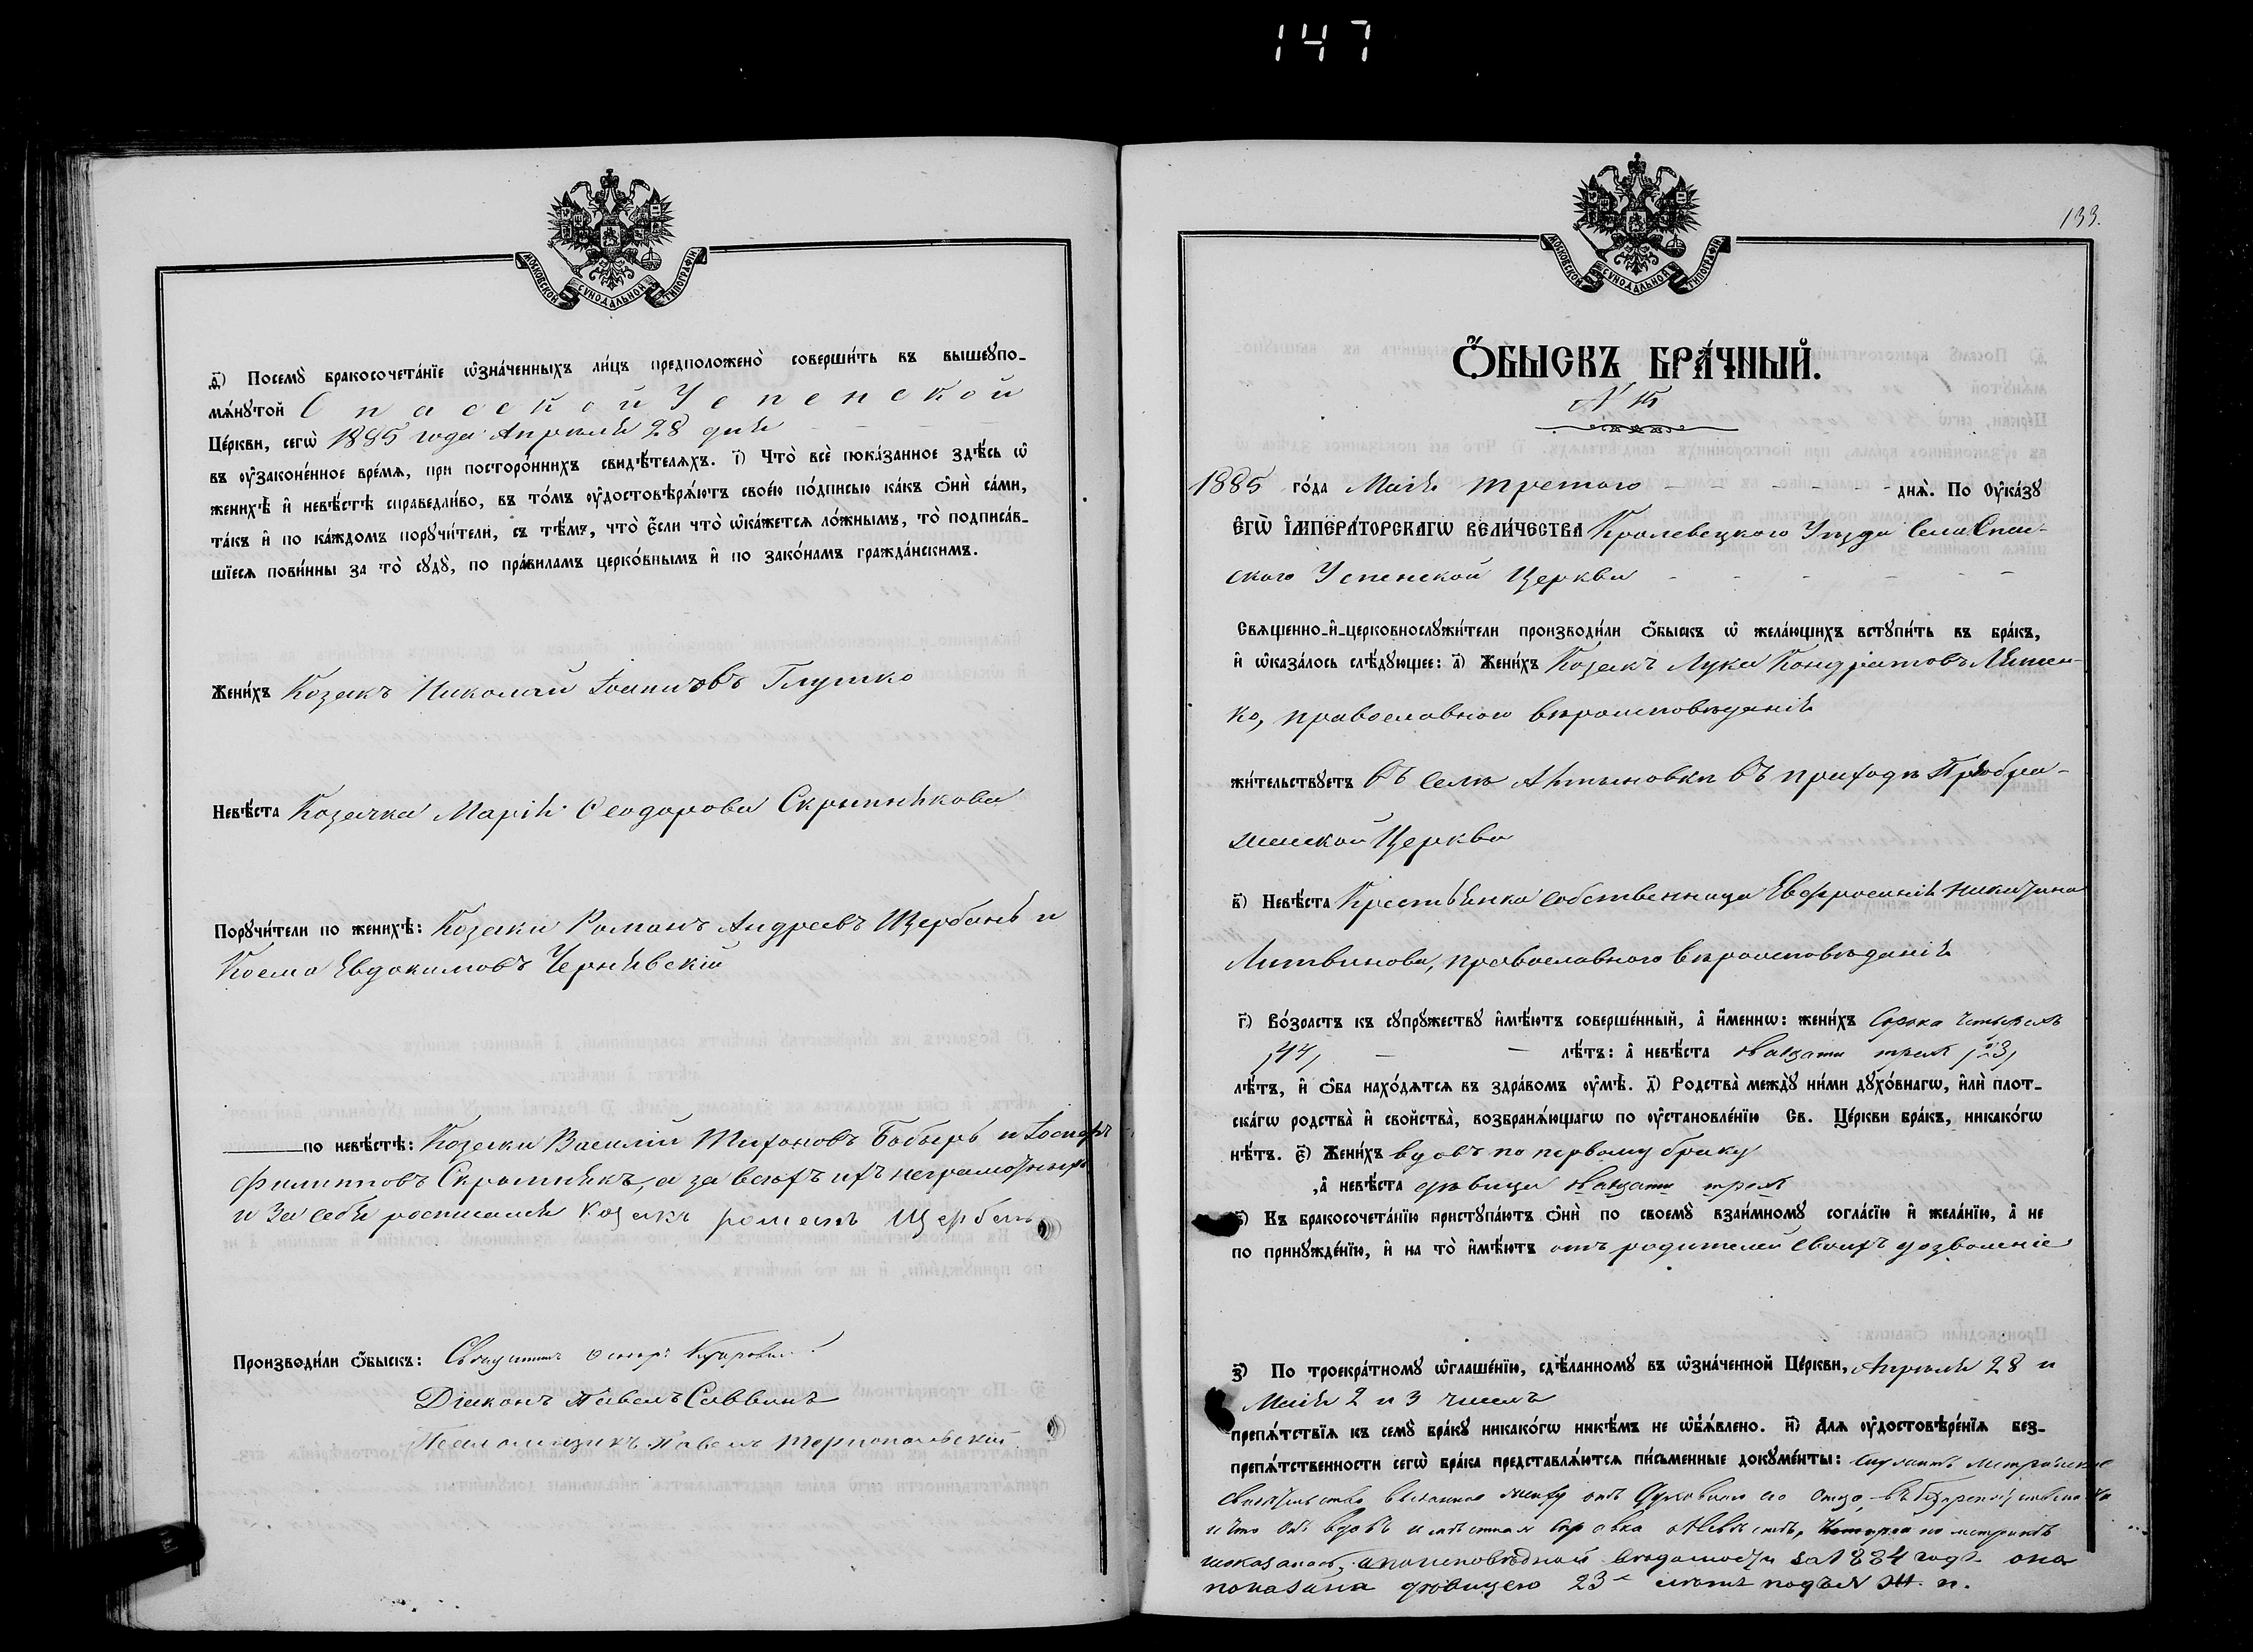 147
МОСКОВСКОЙ СѴНОДАЛЬНОЙ ТИПОГРАФІИ
д҃) Посемꙋ̀ бракосочета́нїе ѡ҆зна́ченныхъ ли́цъ предположено̀ соверши́ть въ вышеꙋпо-
мѧ́нꙋтой Спасской Успенской
Це́ркви, сегѡ̀ 1885 года Апрѣля 28 дня
въ ᲂу҆законе́нное вре́мѧ, при посторо́ннихъ свидѣ́телѧхъ. і҃) Что̀ всѐ пока́занное здѣ́сь ѡ҆
женихѣ̀ и҆ невѣ́стѣ справедли́во, въ то́мъ ᲂу҆достовѣрѧ́ютъ свое́ю по́дписью ка́къ ѻ҆нѝ са́ми,
та́къ и҆ по ка́ждомъ порꙋчи́тели, съ тѣ́мъ, что̀ є҆́сли что̀ ѡ҆ка́жетсѧ ло́жнымъ, то̀ подписа́в-
шїесѧ пови́нны за то̀ сꙋдꙋ̀, по пра́виламъ церко́внымъ и҆ по зако́намъ гражда́нскимъ.
Жени́хъ Козакъ Николай Іоанновъ Глушко
Невѣ́ста Козачка Марія Ѳеодорова Скрыпникова
Порꙋчи́тели по женихѣ̀: Козаки Романъ Андреевъ Щербань и
Косма Евдокимовъ Чернявскій
по невѣ́стѣ: Козаки Василій Тихоновъ Бобырь и Іосифъ
Филипповъ Скрыпникъ, а за всѣхъ ихъ неграмотныхъ
и за себя росписался козакъ романъ Щербань
Производи́ли ѻ҆́быскъ: Священникъ
Діаконъ Павелъ Саввинъ
Псаломщикъ Павелъ Тернопольскій
133.
МОСКОВСКОЙ СѴНОДАЛЬНОЙ ТИПОГРАФІИ
Ѻ҆́БЫСКЪ БРА́ЧНЫЙ.
№ 15
1885 го́да Маія третьяго днѧ̀. По Оу҆ка́зꙋ
Є҆гѡ̀ І҆мпера́торскагѡ Вели́чества Кролевецкого Уѣзда Села Спас-
ского Успенской Церкви
Свѧще́нно-и҆-церковнослꙋжи́тели производи́ли ѻ҆́быскъ ѡ҆ жела́ющихъ встꙋпи́ть въ бра́къ,
и҆ ѡ҆каза́лось слѣ́дꙋющее: а҃) Жени́хъ Козакъ Лука Кондратовъ
ко, православного вѣроисповѣданія
жи́тельствꙋетъ въ селѣ въ приходѣ Преобра-
женской Церкви
в҃) Невѣ́ста Крестьянка собственница Евфросинія Никитина
Литвинова, православного вѣроисповѣданія
г҃) Во́зрастъ къ сꙋпрꙋ́жествꙋ и҆мѣ́ютъ соверше́нный, а҆ и҆́менно: жени́хъ Сорока четырехъ
/44/ лѣ́тъ: а҆ невѣ́ста двадцати трехъ /23/
лѣ́тъ, и҆ ѻ҆́ба нахо́дѧтсѧ въ здра́вомъ ᲂу҆мѣ̀. д҃) Родства̀ междꙋ̀ ни́ми дꙋхо́внагѡ, и҆лѝ плот-
ска́гѡ родства̀ и҆ сво́йства̀, возбранѧ́ющагѡ по ᲂу҆становле́нїю Св. Це́ркви бра́къ, никако́гѡ
нѣ́тъ. є҃) Жени́хъ вдовъ по первому браку
, а҆ невѣ́ста дѣвица двадцати трехъ
ѕ҃) Къ бракосочета́нїю пристꙋпа́ютъ ѻ҆нѝ по своемꙋ̀ взаи́мномꙋ согла́сїю и҆ жела́нїю, а҆ не
по принꙋжде́нїю, и҆ на то̀ и҆мѣ́ютъ отъ родителей своихъ дозволеніе
з҃) По троекра́тномꙋ ѡ҆глаше́нїю, сдѣ́ланномꙋ въ ѡ҆зна́ченной Це́ркви, Апрѣля 28 и
Маія 2 и 3 числъ
препѧ́тствїѧ къ семꙋ̀ бра́кꙋ никако́гѡ никѣ́мъ не ѡ҆б̾ѧ́влено. и҃) Длѧ ᲂу҆достовѣре́нїѧ без-
препѧ́тственности сегѡ̀ бра́ка представлѧ́ютсѧ пи́сьменные докꙋме́нты:
свидѣтельство выданное жениху отъ Духовного его Отца
и что онъ вдовъ и справка о невѣстѣ, по метрикѣ
показалась, исповѣдной вѣдомости за 1884 годъ она
показана дѣвицею 23 лѣтъ подъ №